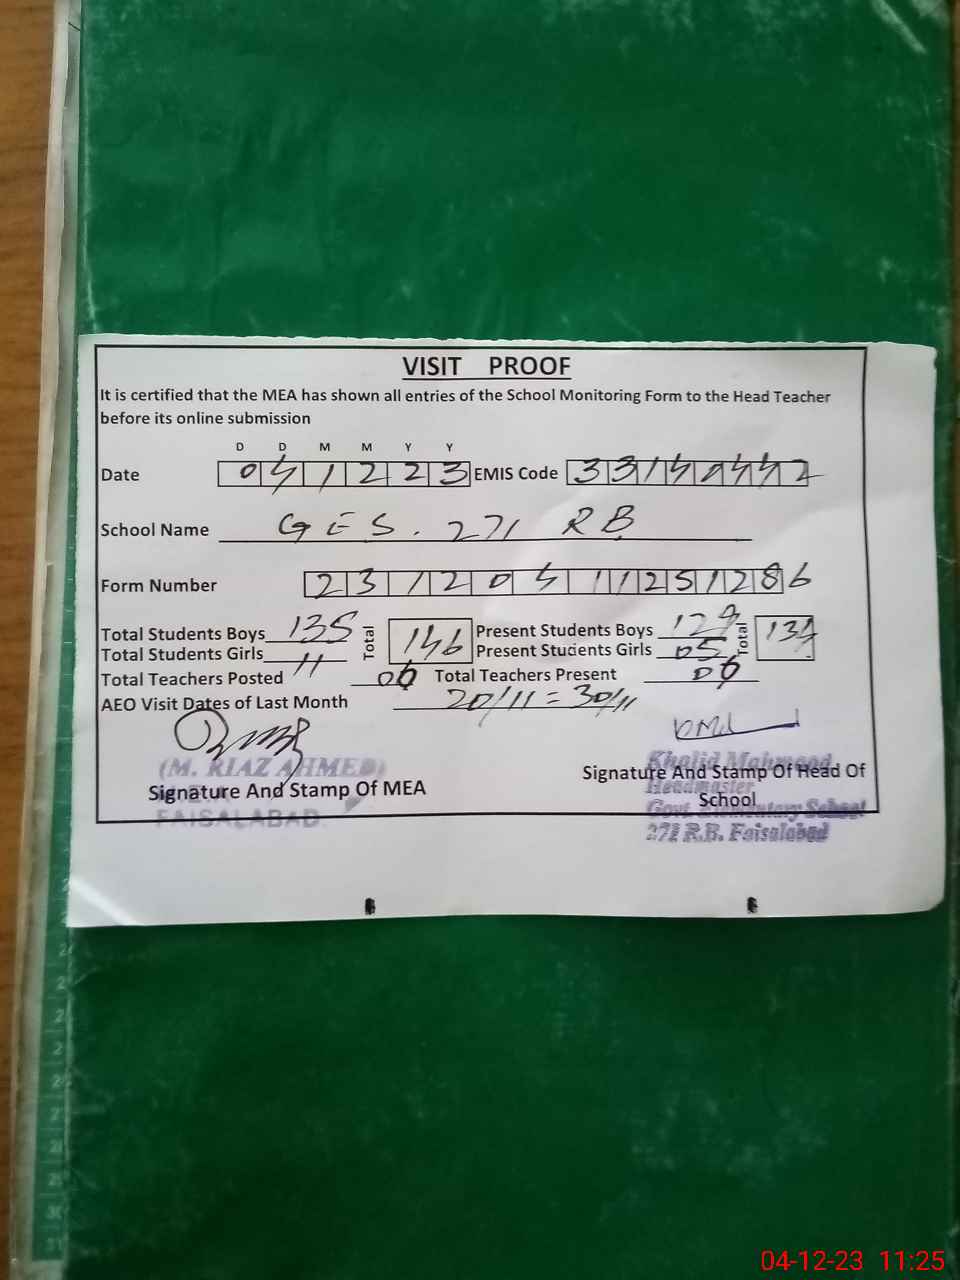 VISIT PROOF
It is certified that the MEA has shown all entries of the School Monitoring Form to the Head Teacher
before its online submission
D D M M Y Y
Date 041223 EMIS Code
School Name GES. 271 RB
Form Number 23120411251286
Total Students Boys 135 Total 146 Present Students Boys 129 Total 134
Total Students Girls 11 Present Students Girls 05
Total Teachers Posted 06 Total Teachers Present 06
AEO Visit Dates of Last Month 20/11 = 30/11
(M. RIAZ AHMED)
Signature And Stamp Of MEA
FAISALABAD
Khalid Mahmood
Signature And Stamp Of Head Of
Headmaster
School
Govt. Elementary School
271 R.B. Faisalabad
04-12-23 11:25